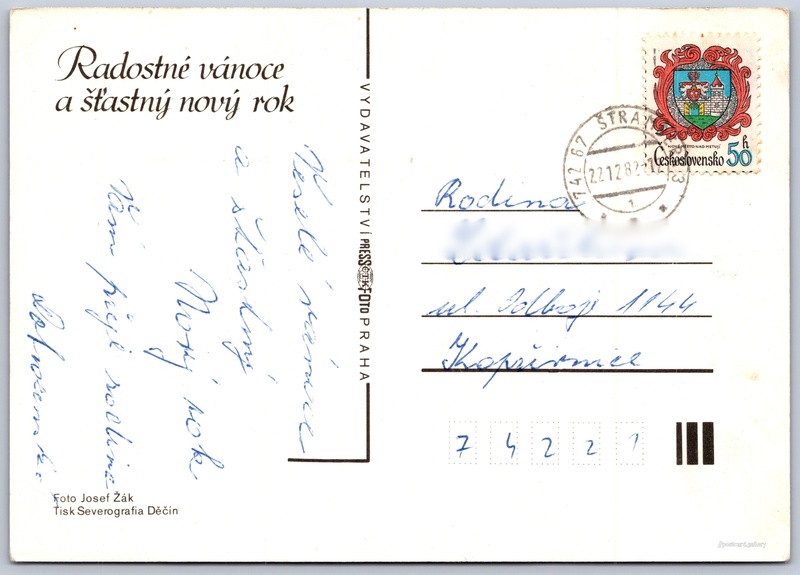 Radostné vánoce
a šťastný nový rok
Veselé vánoce
a šťastný
Nový rok
Vám přeje rodina
VYDAVATELSTVÍ PRESSFOTO PRAHA
ČTK
NOVÉ MĚSTO NAD METUJÍ
Československo 50 h
742 67 ŠTRAMBERK
22.12.82
1
Rodina
ul. Odboje 1144
Kopřivnice
7 4 2 2 1
Foto Josef Žák
Tisk Severografia Děčín
@postcard.gallery